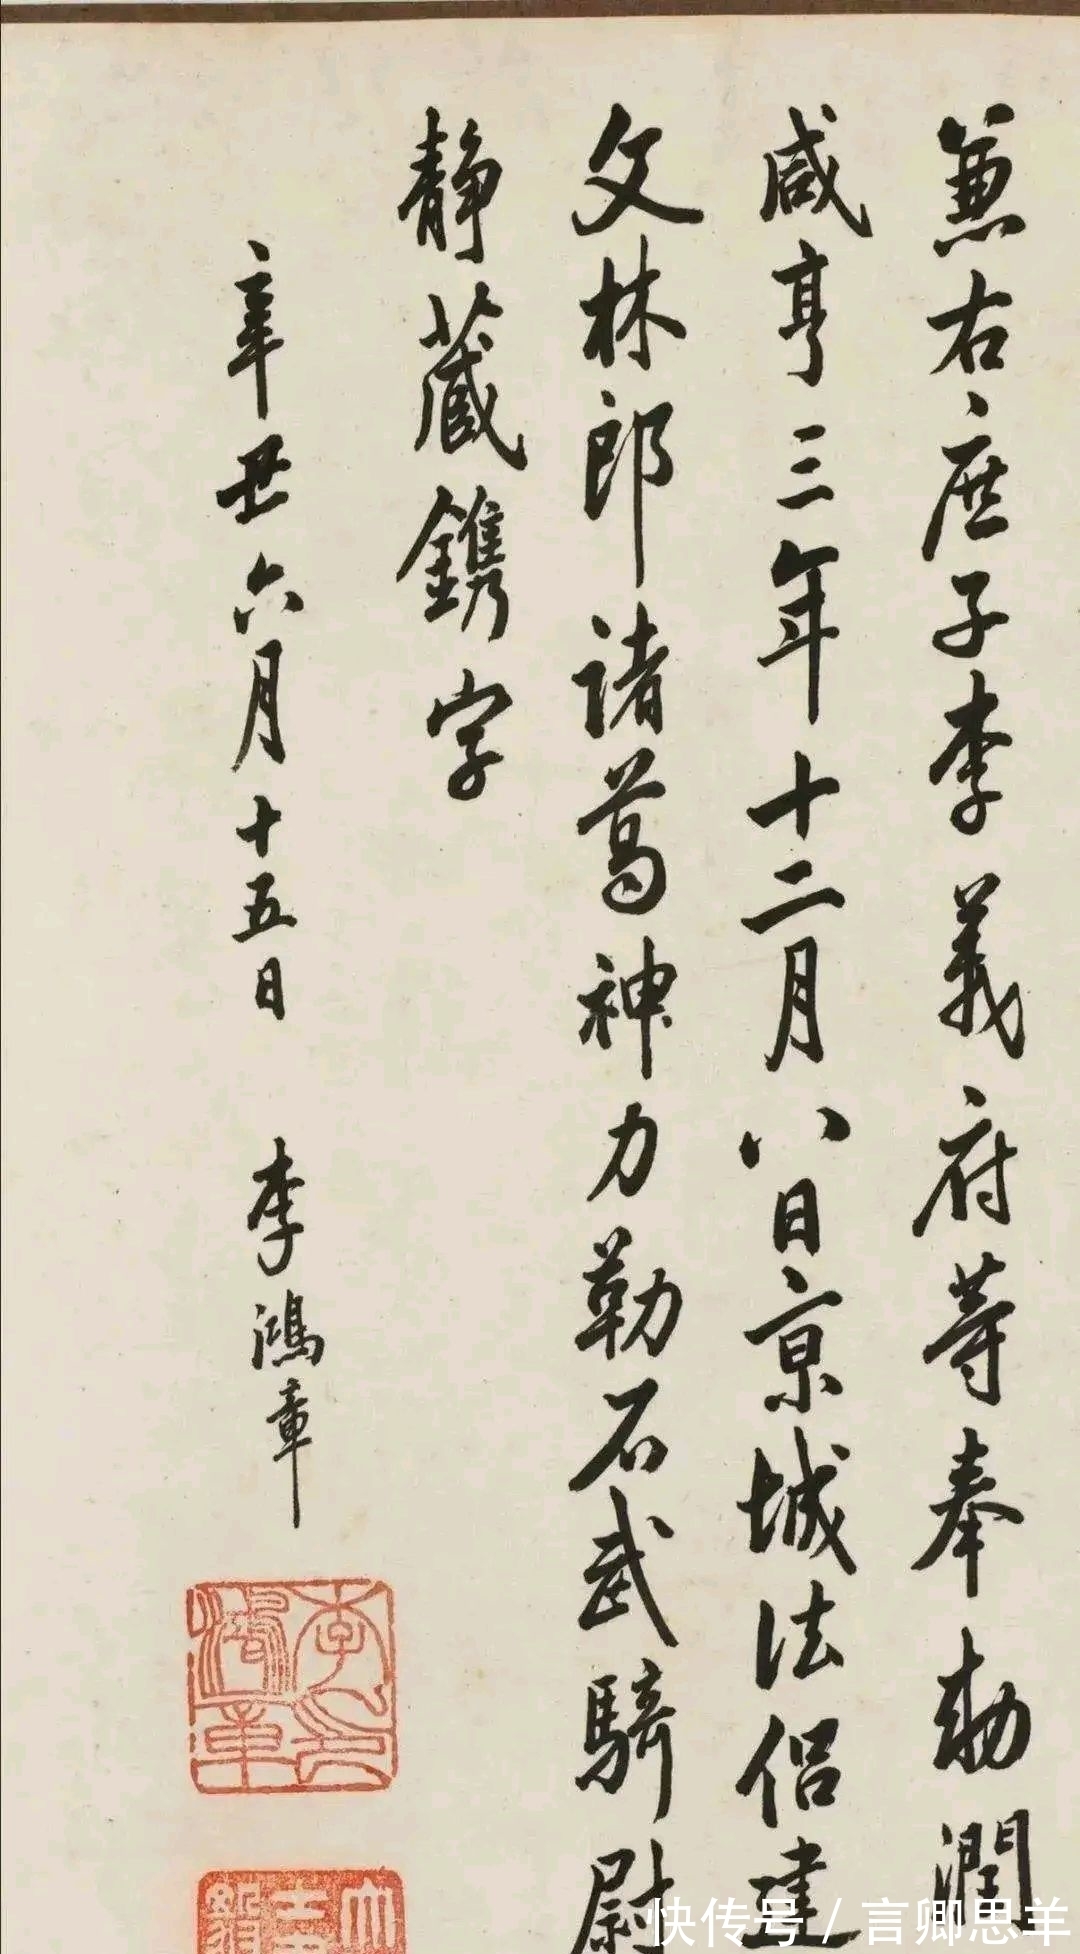 兼右庶子李義府等奉勅潤
咸亨三年十二月八日京城法侶建
文林郎諸葛神力勒石武騎尉
静藏鐫字
辛丑六月十五日 李鴻章
李鴻章印
快传号 / 言卿思羊